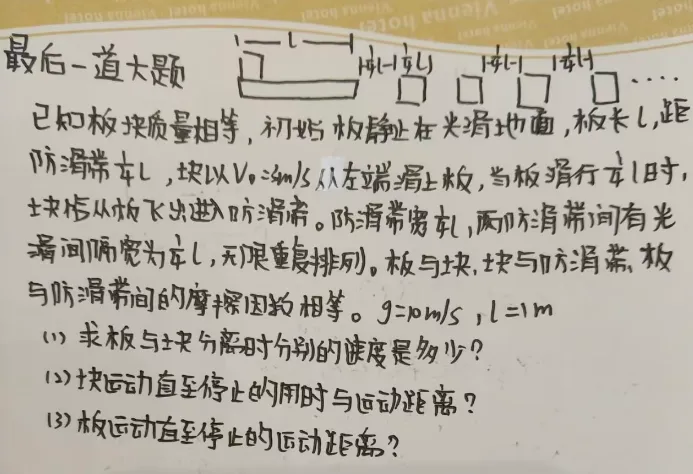 Vienna hotel
最后一道大题
l
¼l ¼l ¼l ¼l ....
已知板块质量相等,初始板静止在光滑地面,板长l,距
防滑带¼l,块以V₀=3m/s从左端滑上板,当板滑行¼l时,
块恰从板飞出进入防滑带。防滑带宽¼l,两防滑带间有光
滑间隔宽为¼l,无限重复排列。板与块、块与防滑带、板
与防滑带间的摩擦因数相等。g=10m/s,l=1m
(1)求板与块分离时分别的速度是多少?
(2)块运动直至停止的用时与运动距离?
(3)板运动直至停止的运动距离?